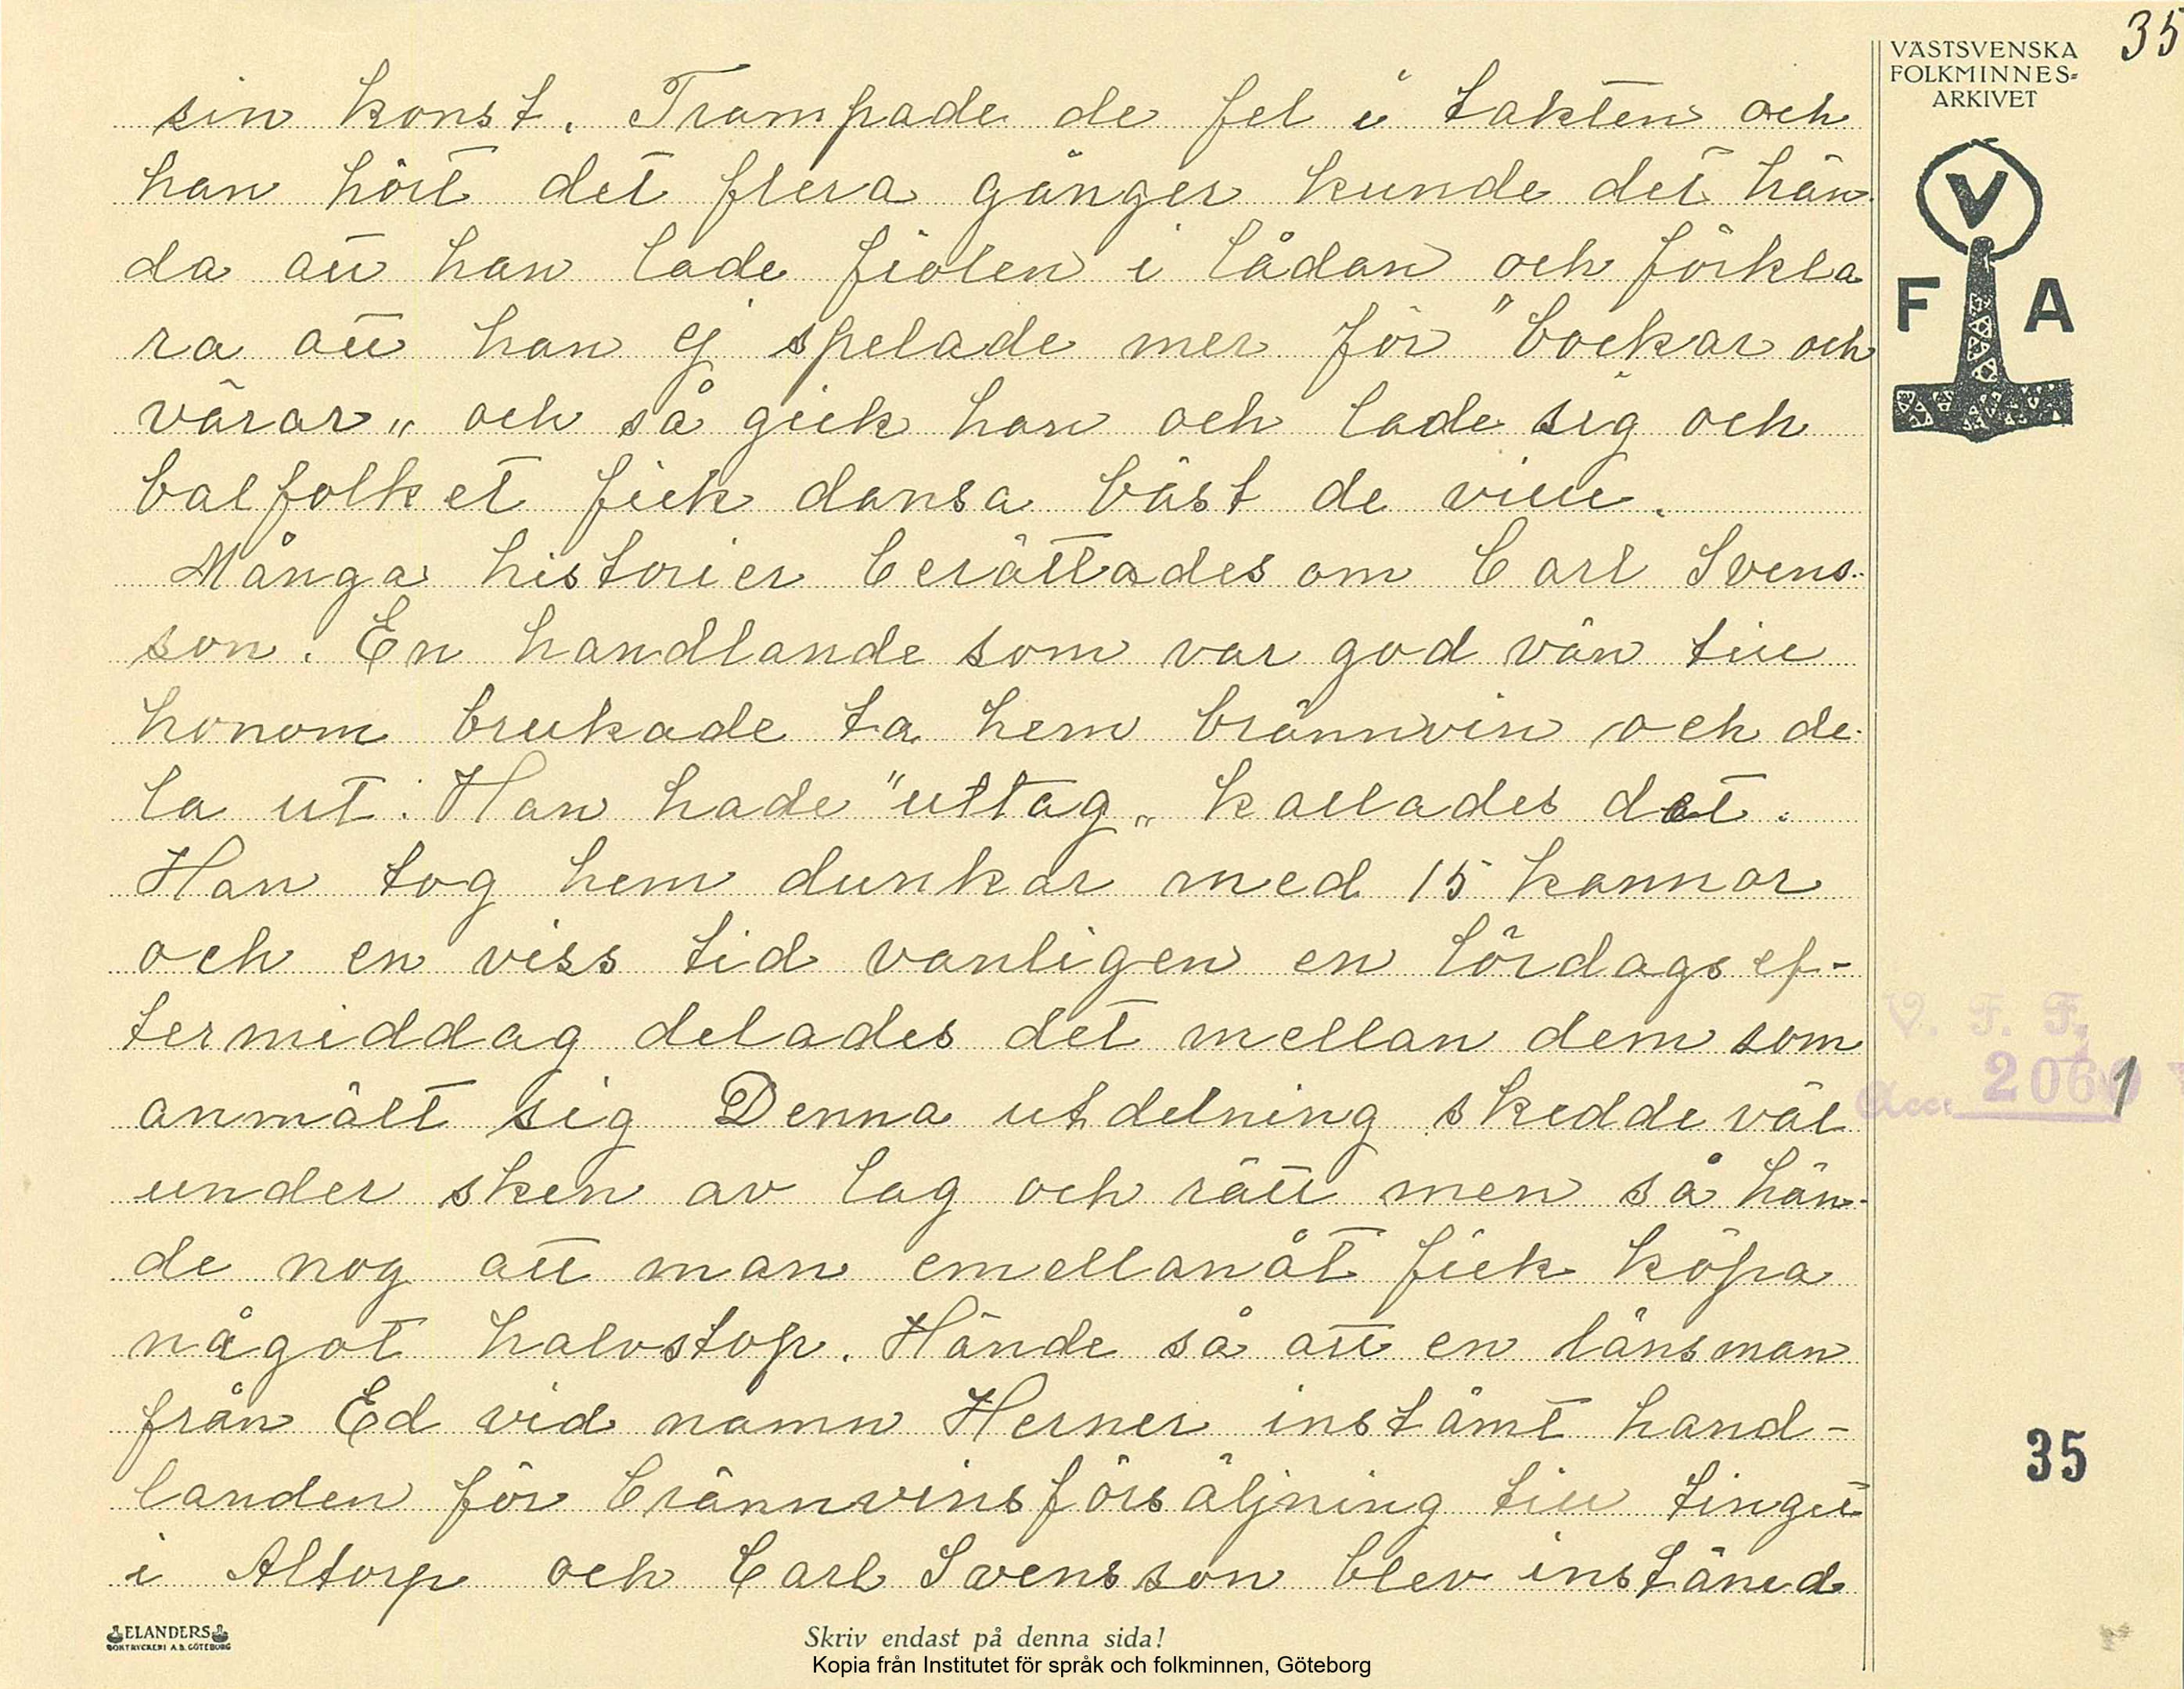 35
VÄSTSVENSKA
FOLKMINNES-
ARKIVET
V
F A
sin konst. Trampade de fel i takten och
han hört det flera gånger kunde det hän
da att han lade fiolen i lådan och förkla
ra att han ej spelade mer för "bockar och
värar" och så gick han och lade sig och
balfolket fick dansa bäst de ville.
Många historier berättades om Carl Svens-
son. En handlande som var god vän till
honom brukade ta hem brännvin och de-
la ut. Han hade "uttag" kallades det.
Han tog hem dunkar med 15 kannor
och en viss tid vanligen en lördagsef-
termiddag delades det mellan dem som
anmält sig Denna utdelning skedde väl
under sken av lag och rätt men så hän-
de nog att man emellanåt fick köpa
något halvstop. Hände så att en länsman
från Ed vid namn Herner instämt hand-
landen för brännvinsförsäljning till tinget
i Altorp och Carl Svensson blev
V. F. F.
Acc. 2060 1
35
ELANDERS
BOKTRYCKERI A.B. GÖTEBORG
Skriv endast på denna sida!
Kopia från Institutet för språk och folkminnen, Göteborg